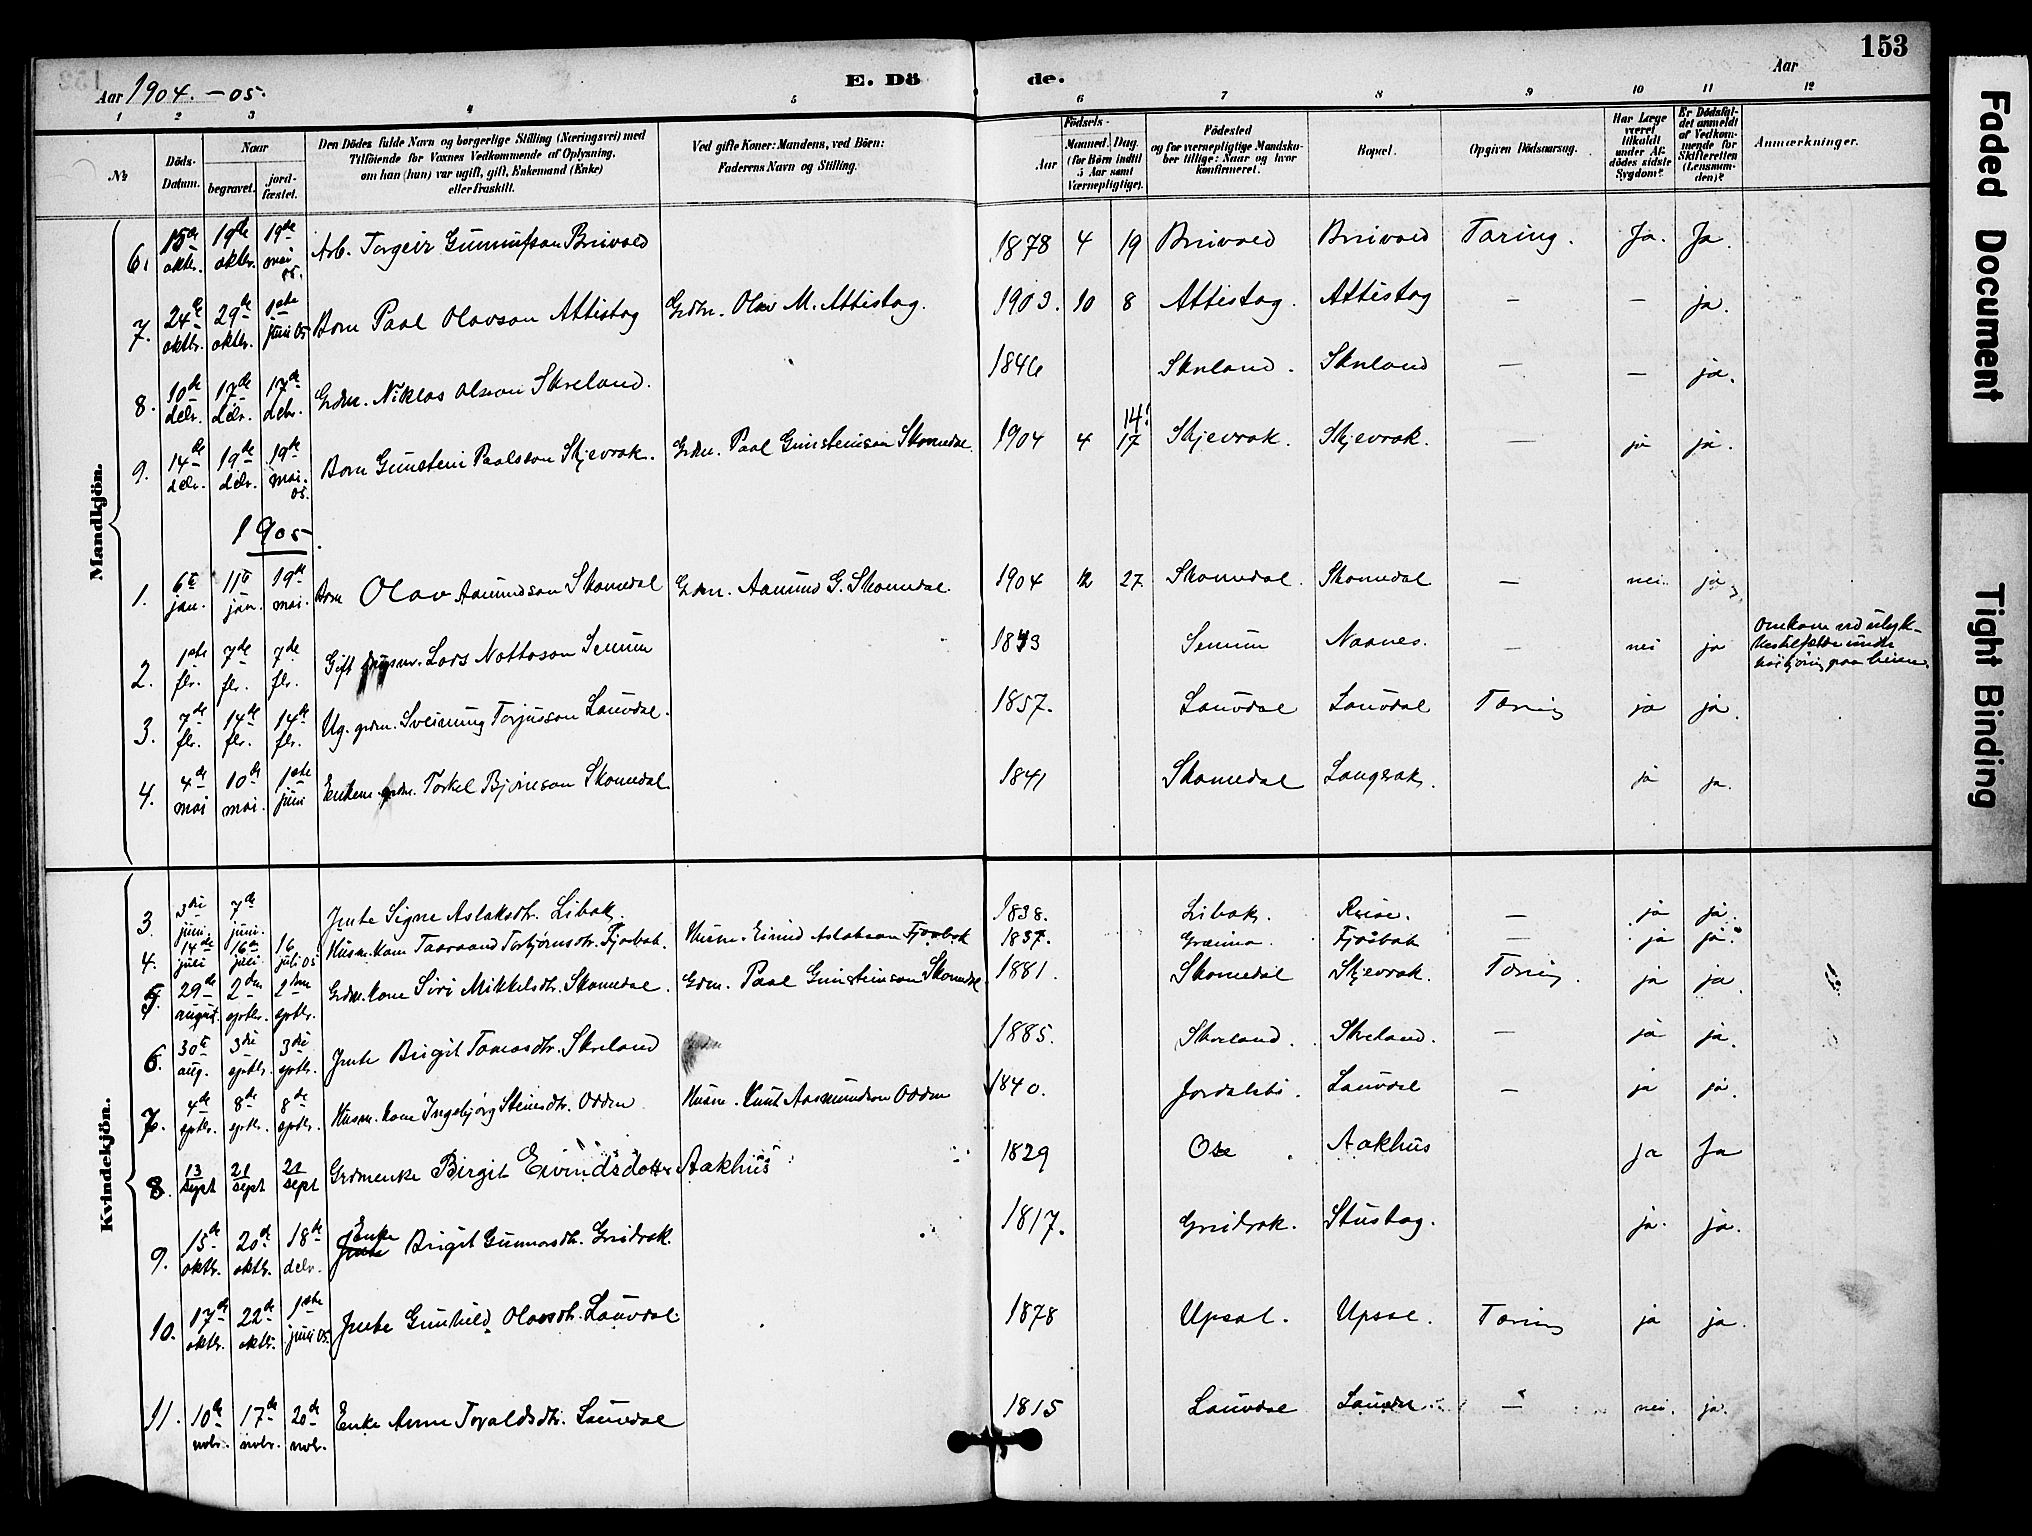 153
Aar 1904. - 05.
E. Dö de.
Aar
1 2 3 4 5 6 7 8 9 10 11 12
No
Döds-Datum.
Naar
begravet.
jord-fæstet.
Den Dödes fulde Navn og borgerlige Stilling (Næringsvei) med
Tilföiende for Voxnes Vedkommende af Oplysning,
om han (hun) var ugift, gift, Enkemand (Enke)
eller fraskilt.
Ved gifte Koner: Mandens, ved Börn:
Faderens Navn og Stilling.
Födsels-
Aar
Maaned. Dag.
(for Börn indtil
5 Aar samt
Værnepligtige).
Födested
og for værnepligtige Mandska-
ber tillige: Naar og hvor
konfirmeret.
Bopæl.
Opgiven Dödsaarsag.
Har Læge
været
tilkaldt
under Af-
dödes sidste
Sygdom?
Er Dödsfal-
det anmeldt
af Vedkom-
mende for
Skifteretten
(Lensman-
den)?
Anmærkninger.
Mandkjön.
6. 15de oktbr. 19de oktbr. 19de mai 05. Arb. Torgeir Gunnufson Brivold 1878 4 19 Brivold Brivold Tæring. Ja. Ja.
7. 24de oktbr. 29de oktbr. 1ste juni 05 Barn Paal Olavson Attistog Grdm. Olav M. Attistog. 1903. 10 8 Attistog. Attistog — — ja.
8. 10de debr. 17de debr. 17de debr. Grdm. Niklas Olsson Skreland. 1846 Skreland. Skreland — — ja.
9. 14de debr. 19de debr. 19de mai. 05. Barn Gunstein Paalsson Skjevrak. Grdm. Paal Gunsteinson Skomedal. 1904 4 17 14! Skjevrak. Skjevrak. — ja ja.
1905.
1. 6te jan. 11te jan. 19de mai. Barn Olav Aamundson Skomedal Grdm. Aamund G. Skomedal. 1904 12 27 Skomedal. Skomedal — nei. ja
2. 1ste fbr. 7de fbr. 7de fbr. Gift Lars Nottoson Senum Senum Naanes. — nei ja Omkom ved
3. 7de fbr. 14de fbr. 14de fbr. Ug. grdm. Sveinung Torjusson Lauvdal. 1857. Lauvdal Lauvdal Tæring ja ja.
4. 4de mai 10de mai. 1ste juni Enkem. grdm. Torkel Bjørnson Skomedal. 1841 Skomedal Langerak. ja ja.
Kvindekjön.
3. 3die juni. 7de juni. Jente Signe Aslaksdtr. Libak. 1838. Libak. — ja ja.
4. 14de juli 16de juli. 16 juli 05 Husm. kone Taaraand Torbjørnsdtr. Fjosbak. Husm. Eivind Aslakson Fjosbak 1837. Fjosbak — ja ja.
5. 29de august. 2den septbr. 2den septbr. Grdm. kone Siri Mikkelsdtr. Skomedal. Grdm. Paal Gunsteinson Skomedal 1881. Skomedal Skjevrak. Tæring. ja ja.
6. 30te aug. 3die septbr. 3die septbr. Jente Birgit Tomasdtr. Skreland 1885. Skreland. Skreland. — ja ja.
7. 4de septbr. 8de septbr. 8de septbr. Husm. kone Ingebjørg Steinsdtr. Odden Husm. Knut Aasmundson Odden 1840. Lauvdal — ja ja.
8. 13 sept 21 sept 21 sept Grdmenke Birgit Eivindsdotter Aakhus 1829 Ose Aakhus ja Ja
9. 15de oktbr. 20de oktbr. 18de debr. Enke Birgit Gunnarsdtr. Greidrak. 1817. Greidrak. Stustog. ja. ja.
10. 17de oktbr. 22de oktbr. 1ste juni 05. Jente Gunhild Olavsdtr. Lauvdal 1878 Upsal. Upsal. Tæring ja ja.
11. 10de novbr. 17de novbr. 20de novbr. Enke Anne Toraldsdtr. Lauvdal 1815 Lauvdal Lauvdal — nei. ja.
Faded Document
Tight Binding